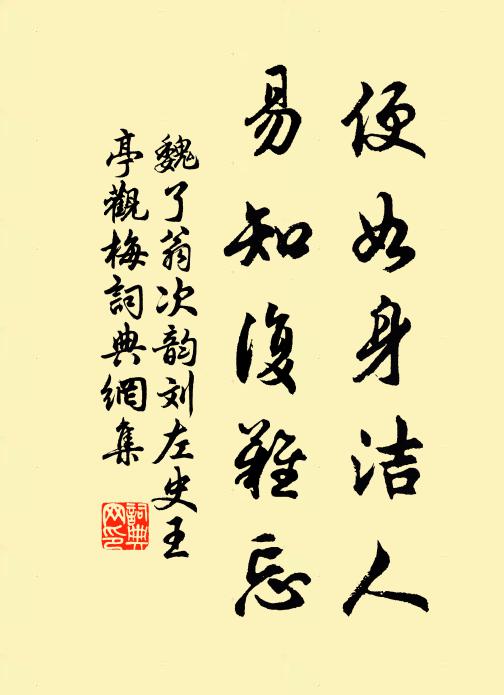 便如身洁人
易知復難忘
魏了翁次韵刘左史王
亭觀梅詞典網集
詞典网印